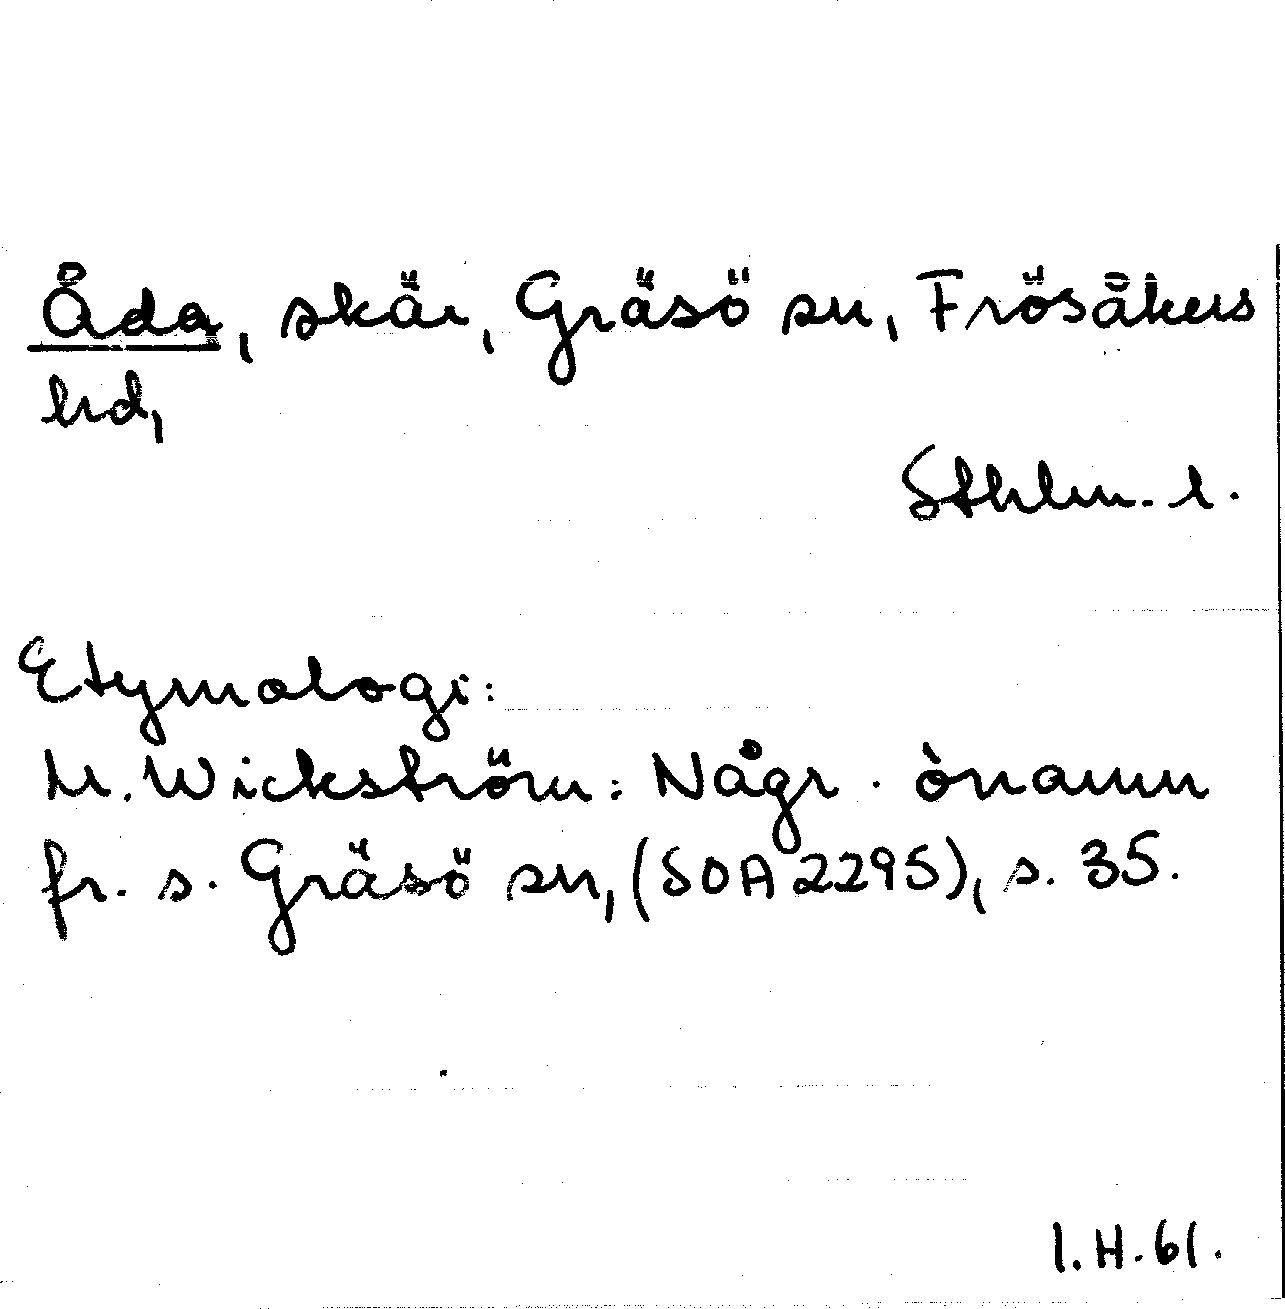 Åda, skär, Gräsö sn, Frösåkers
hd,
Sthlm. l.
Etymologi:
M. Wickström: Någr. önamn
fr. s. Gräsö sn, (SOA 2295), s. 35.
I.H.61.